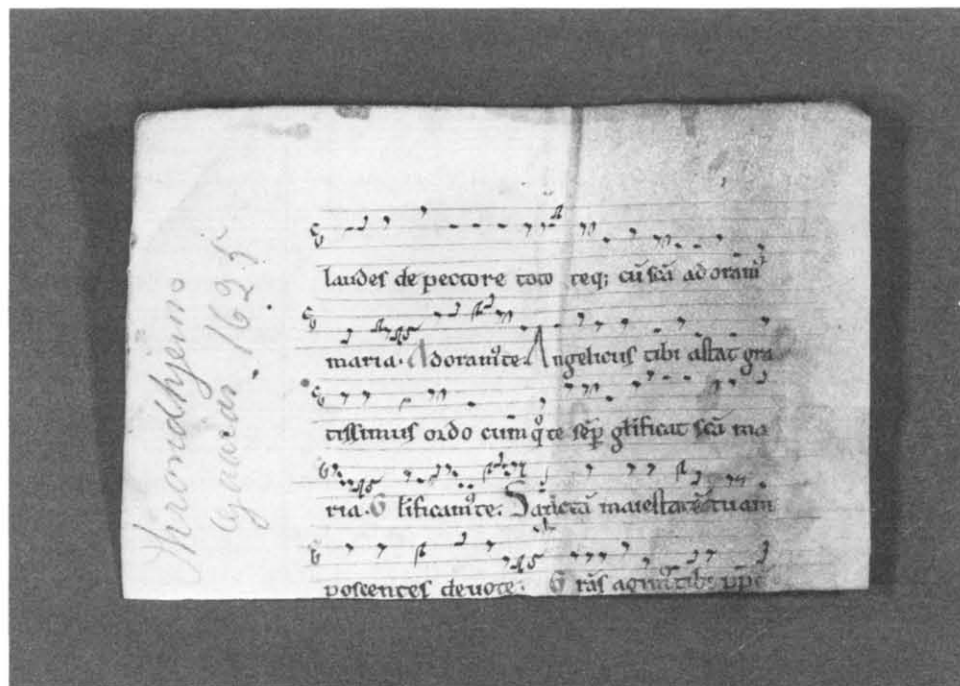 Throndhjems
gaard. 1625
laudes de pectore toto teq; cū scā adoram᷒
maria. Adoram᷒te. Angelicus tibi astat gra
tissimus ordo cumqͦte sēp glificat scā ma
ria. Glificam᷒te. Sanctā maiestatē tuam
poscentes deuote. Grās agim᷒ tibi ppt̄